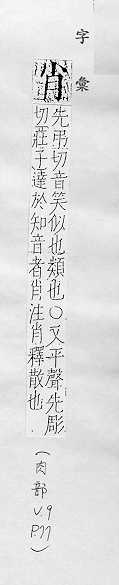 字彙
肖
先弔切音笑似也類也〇又平聲先彫
切莊子達於知音者肖注肖釋散也
(肉部
V.9
P.77)